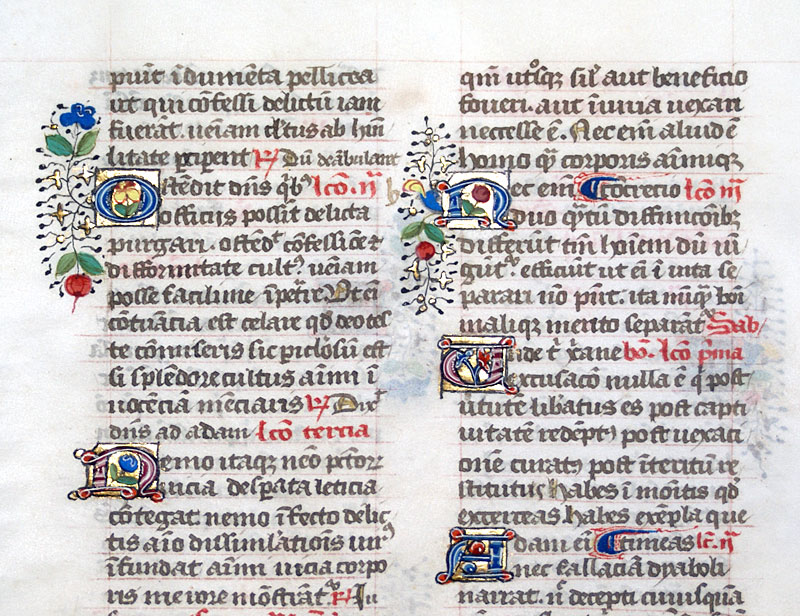 puīt īdumēta pellicea
ut qui cōfessi delictū iam
fuerāt. ueīam cl't9 ab hūi
litate p̄cipent R/ Dū deābularet
Ostēdit dn̄s q̄b9 Lcō. ij
officiis possīt delicta
purgari. ostēd' cōfessiōe et
difformitate cult9 ueīam
posse facilime īpetrare Ut eī
cōtūatia est celare qd deo tes
te cōmiseris sic piclōsū est
si splēdore cultus aīmi ī
nocēciā mēciaris R/ Dix'
dn̄s ad adam Lcō tercia
Nemo itaq; neō pctor
uicia despata leticia
cōtegat nemo īfecto delic
tis aīo dissimulatiōis
īfundat aīmi uicia corpo
ris me iore mōstrāt R/ In
qm̄ ut'sq; sil' aut beneficio
foueri. aut īiuria uexari
necesse ē. Nec eīm aliud ē
homo qm̄ corporis aīmiq;
Nec eīm cōcrecio Lcō iij
duo q̄tū diffinicōib;
differūt tm̄ hoīem dū iū
gūt. efficiūt ut eī ī uita se
parari nō pn̄t. ita
maliq; merito separāt Sab/
Unde t' xane bō. Lcō p̄ma
excusacō nulla ē q̄ post
uitute libatus es post capti
uitatē redēpt9 post uexaci
onē curat9 post īteritū re
stitutus habes ī moītis qd
exerceas habes exēpla que
Adam eī timeas Lc. ij
nec fallaciā dyaboli
narrat. decepti cuiusquā